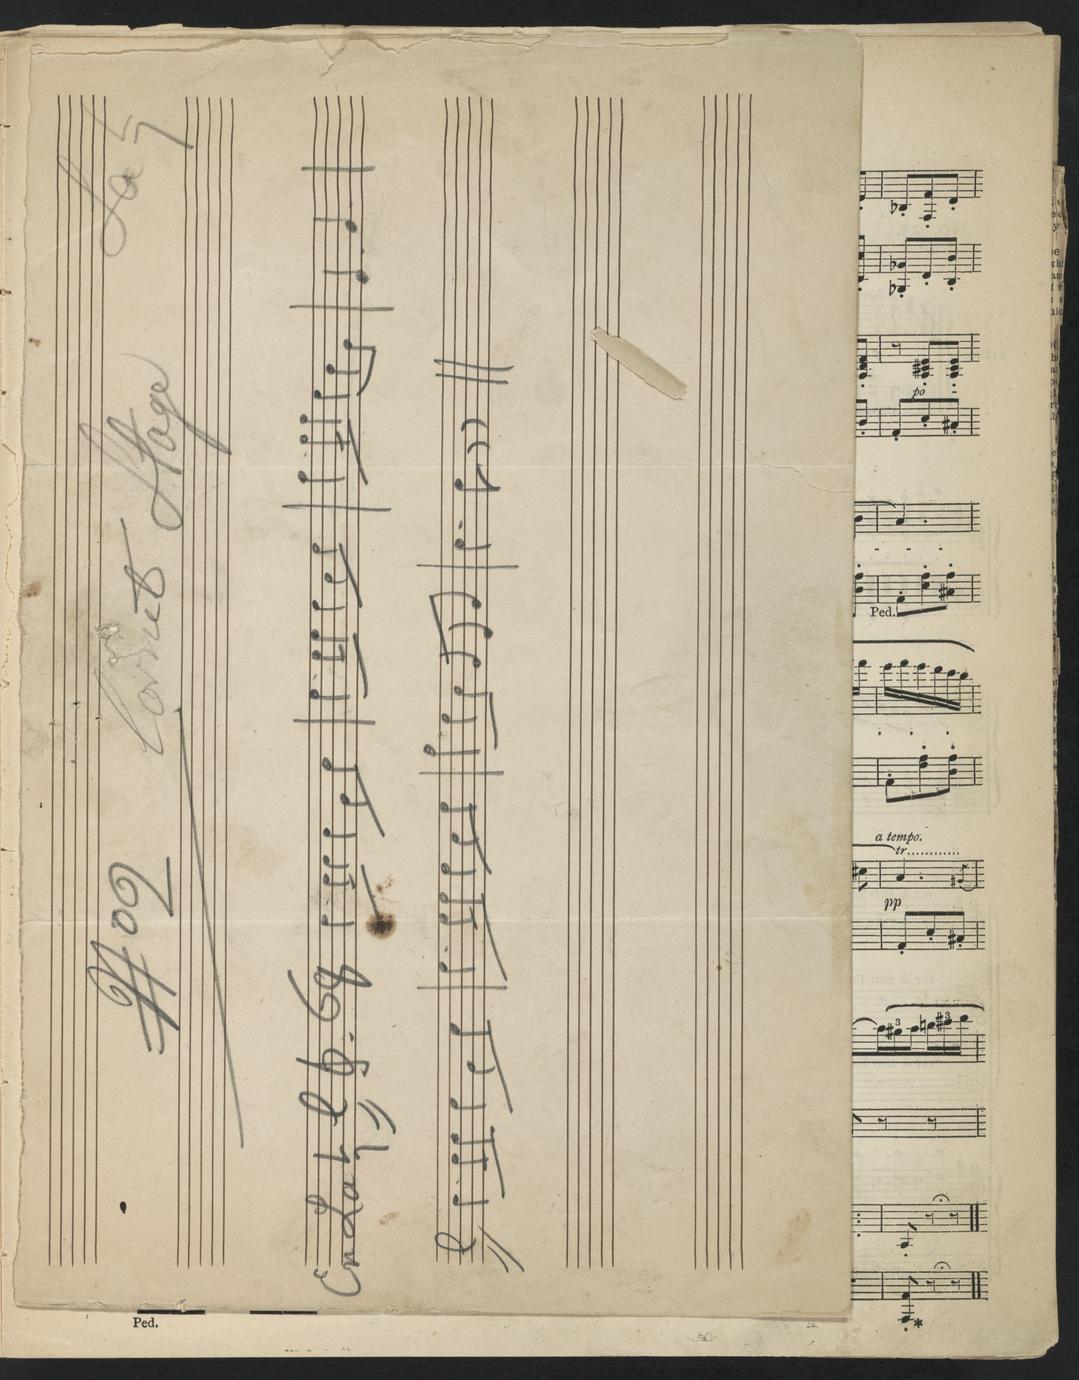 #02 Cornets Stage La ♮
En La ♮
po
Ped.
a tempo.
tr
pp
3
3
Ped.
*